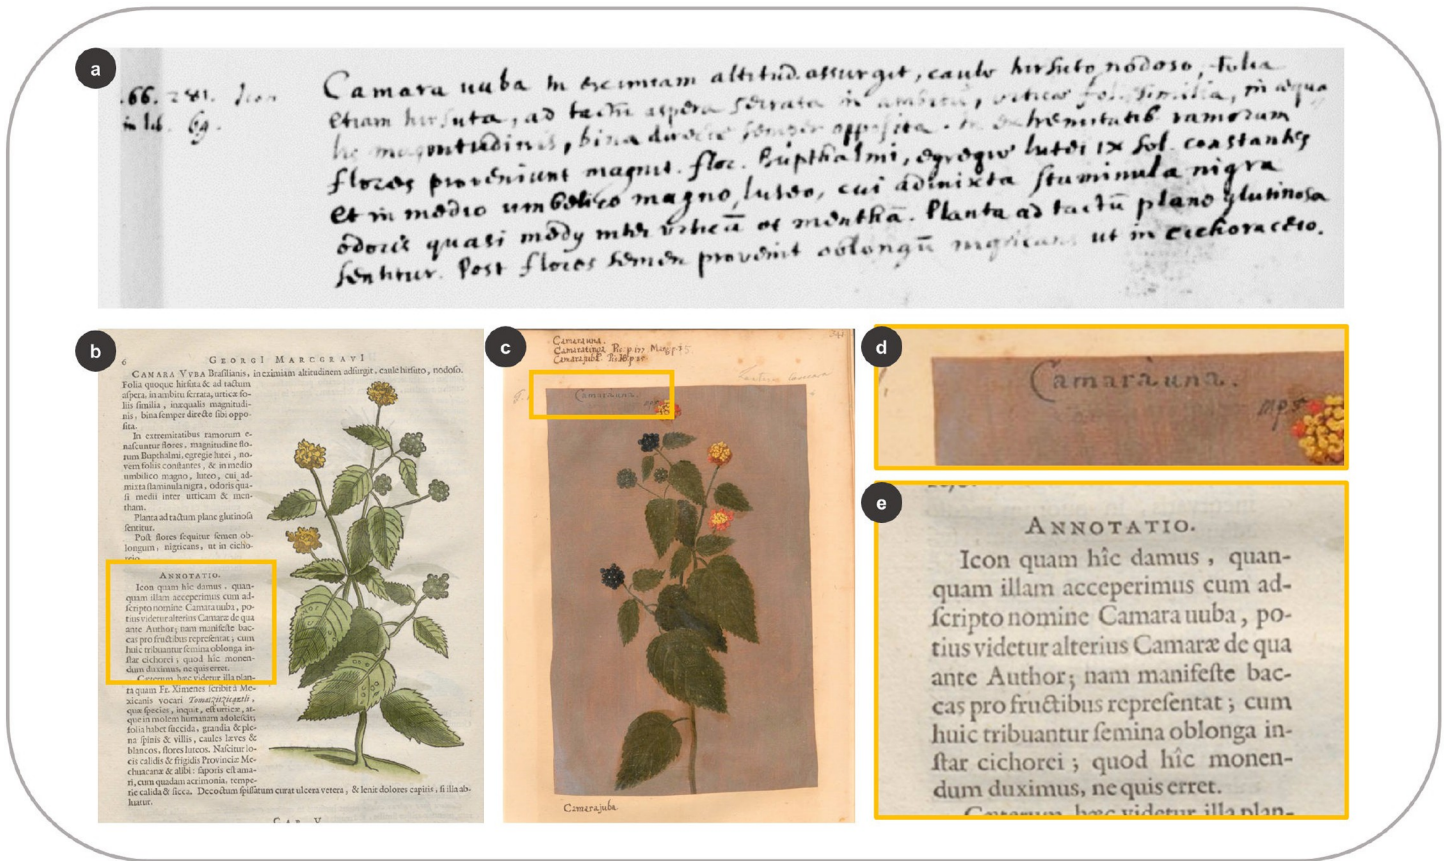 a
.66. 281. Icon
in lib. 69.
Camara uuba in eximiam altitud. assurgit, caule hirsuto, nodoso, folia
etiam hirsuta, ad tactū aspera serrata in ambitu, urticæ fol. similia, in æqua
magnitudinis, bina directe semper opposita. In extremitatib ramorum
flores proveniunt magnit. flor. Bupthalmi, egregie lutei IX fol. constantes
et in medio umbelico magno, luteo, cui admixta staminula nigra
odoris quasi medÿ inter urticā et menthā. Planta ad tactū plane glutinosa
sentitur. Post flores semen provenit oblongū nigricans ut in cichoraceio.
b
6 GEORGI MARCGRAVI
CAMARA VVBA Brasilianis, in eximiam altitudinem adsurgit, caule hirsuto, nodoso.
Folia quoque hirsuta & ad tactum
aspera, in ambitu serrata, urticæ fo-
liis similia, inæqualis magnitudi-
nis, bina semper directe sibi oppo-
sita.
In extremitatibus ramorum e-
nascuntur flores, magnitudine flo-
rum Bupthalmi, egregie lutei, no-
vem foliis constantes, & in medio
umbilico magno, luteo, cui ad-
mixta staminula nigra, odoris qua-
si medii inter urticam & men-
tham.
Planta ad tactum plane glutinosa
sentitur.
Post flores sequitur semen ob-
longum, nigricans, ut in cicho-
reio.
ANNOTATIO.
Icon quam hîc damus, quan-
quam illam acceperimus cum ad-
scripto nomine Camara uuba, po-
tius videtur alterius Camaræ de qua
ante Author; nam manifeste bac-
cas pro fructibus repræsentat; cum
huic tribuantur semina oblonga in-
star cichorei; quod hîc monen-
dum duximus, ne quis erret.
Cæterum hæc videtur illa plan-
ta quam Fr. Ximenes scribit à Me-
xicanis vocari
quæ species, inquit, est urticæ, at-
que in molem humanam adolescit;
folia habet succida, grandia & ple-
na spinis & villis, caules læves &
blancos, flores luteos. Nascitur lo-
cis calidis & frigidis Provinciæ Me-
chuacanæ & alibi: saporis est ama-
ri, cum quadam acrimonia, tempe-
rie calida & sicca. Decoctum spissatum curat ulcera vetera, & lenit dolores capitis, si illa ab-
luatur.
CAP. V.
c
Camara una.
Camaratinga Pis. p. 177 Marg. p. 5.
Camarajuba
Camara una.
m.p.5
Camerajuba
d
Camara una.
m.p.5
e
ANNOTATIO.
Icon quam hîc damus, quan-
quam illam acceperimus cum ad-
scripto nomine Camara uuba, po-
tius videtur alterius Camaræ de qua
ante Author; nam manifeste bac-
cas pro fructibus repreſentat; cum
huic tribuantur semina oblonga in-
star cichorei; quod hîc monen-
dum duximus, ne quis erret.
Cæterum hæc videtur illa plan-